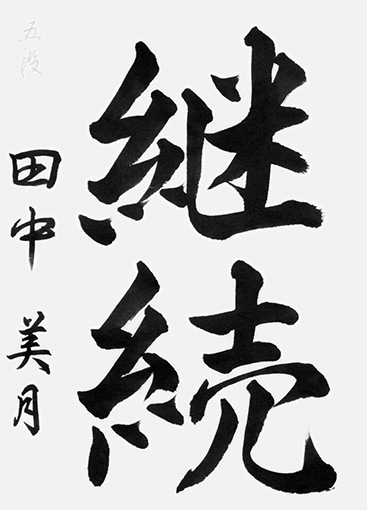 継続
五段
田中 美月